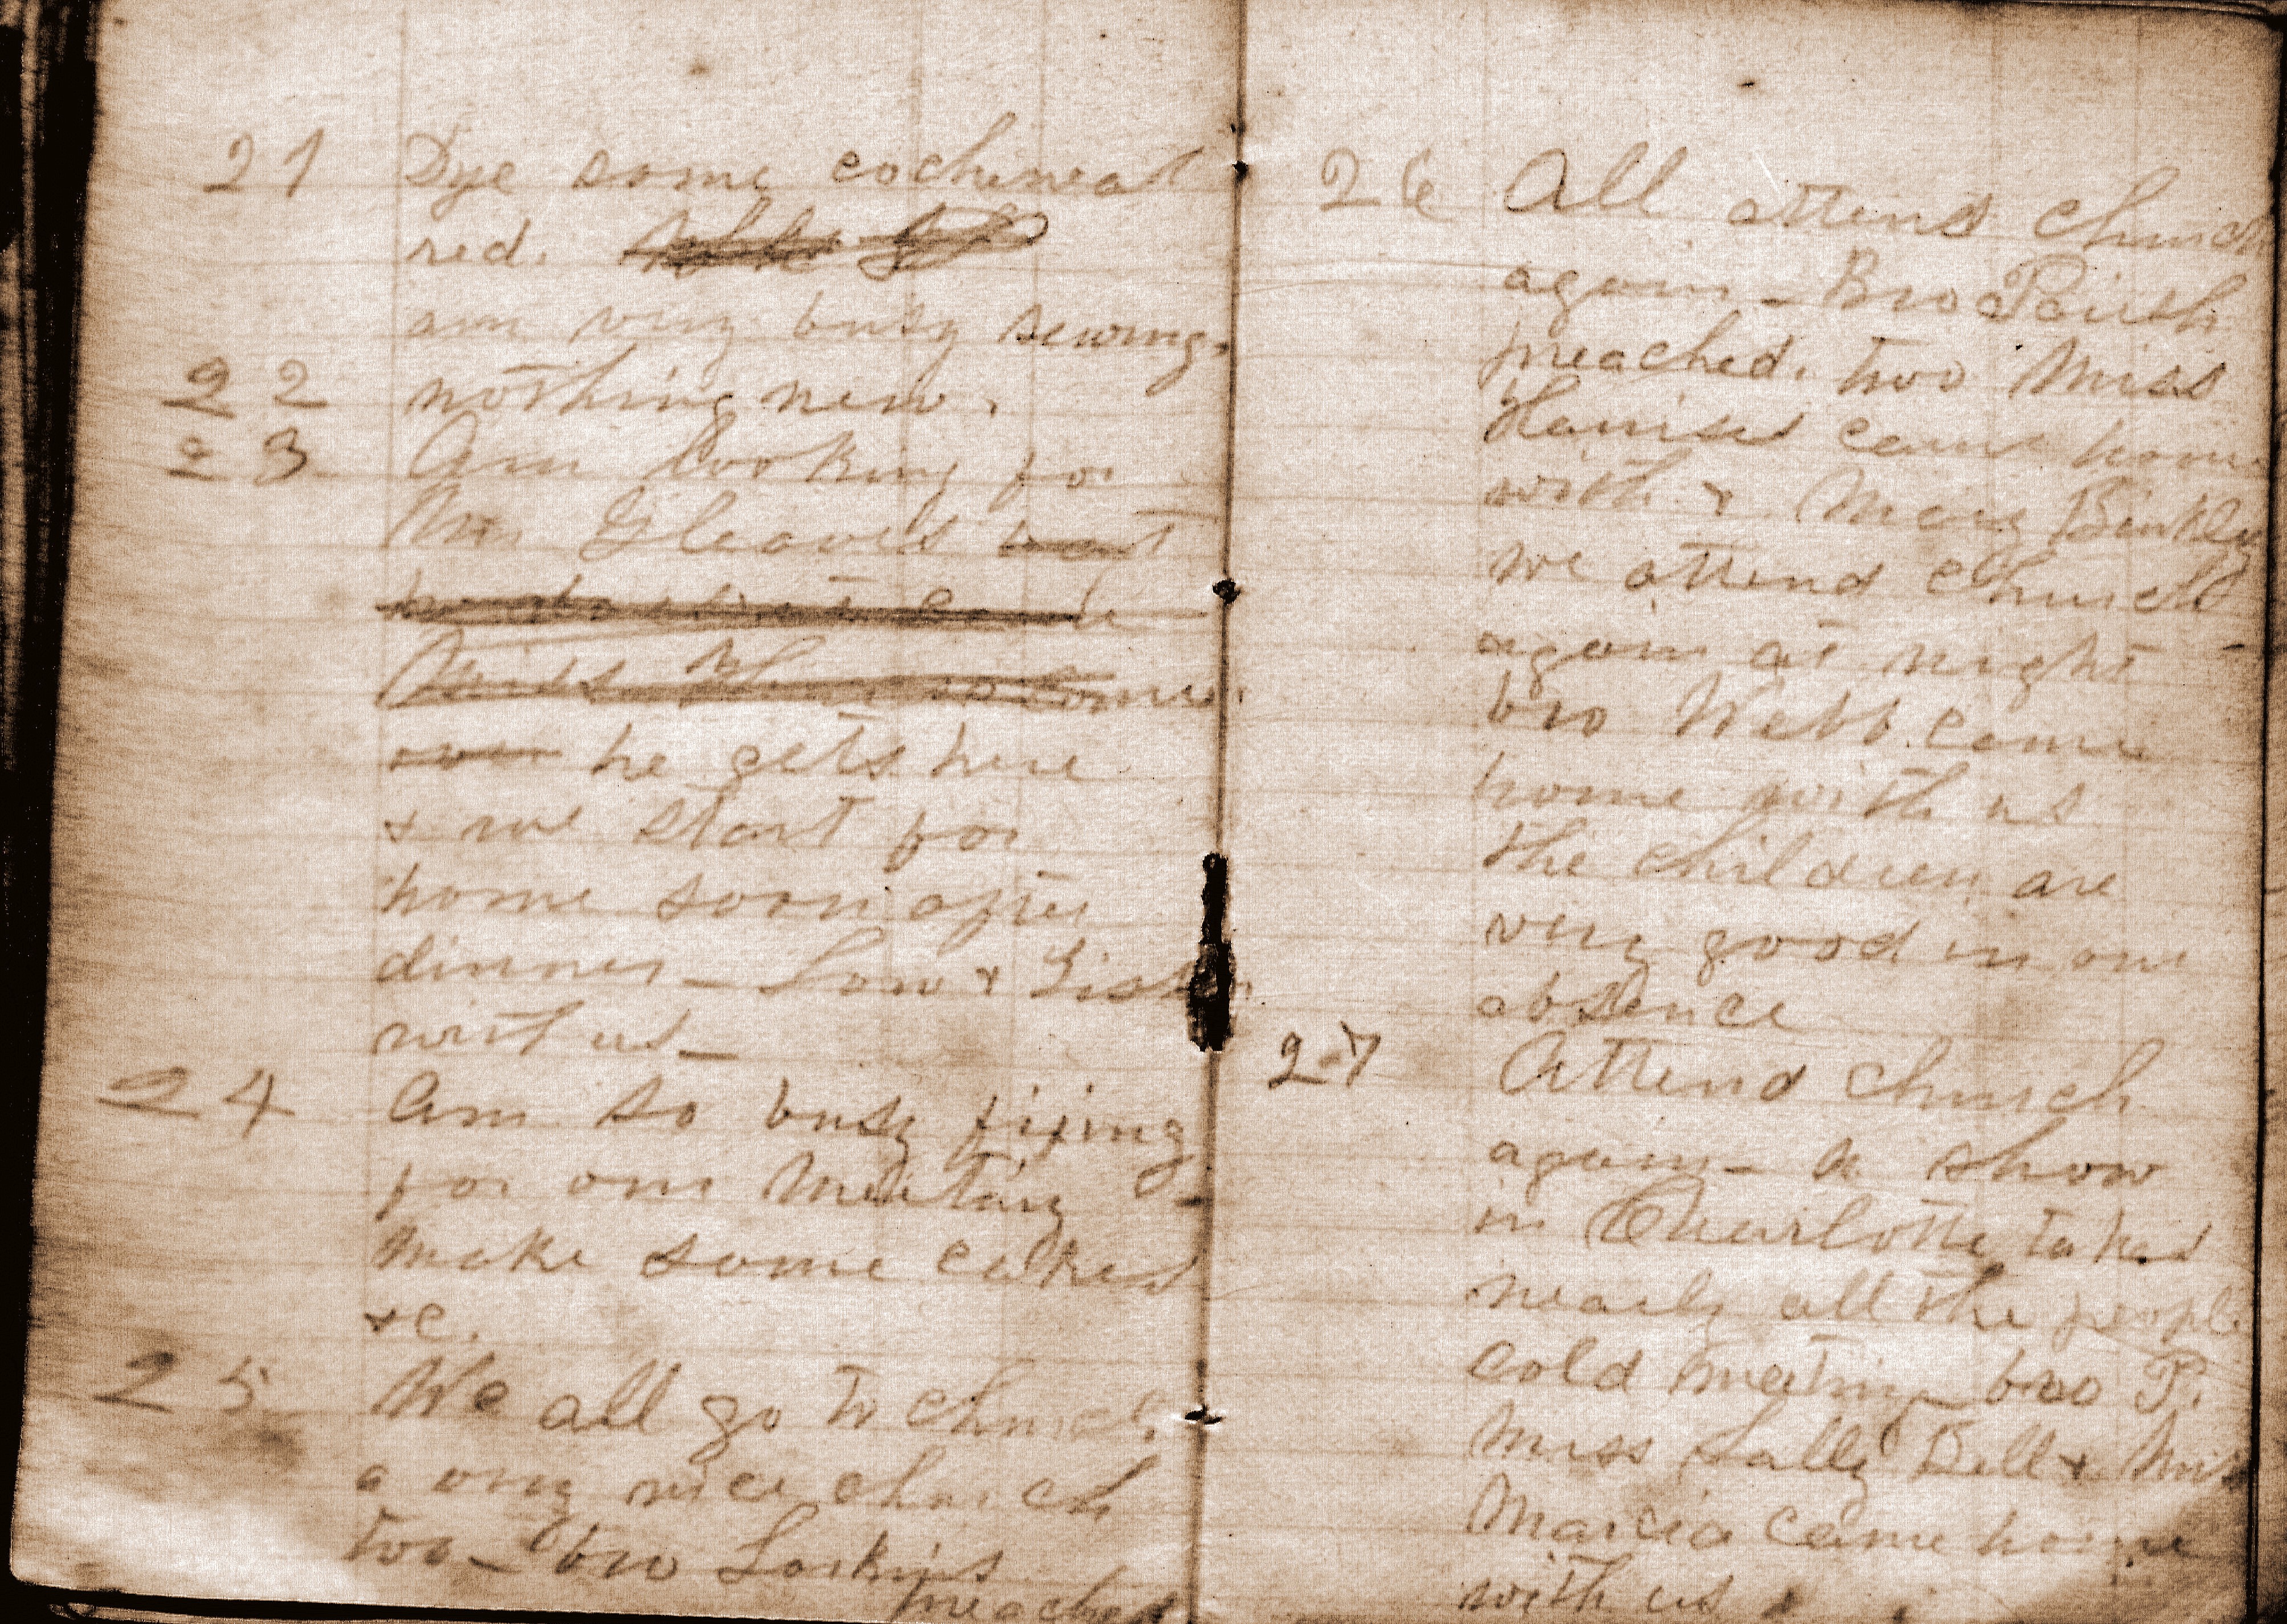 21 Dye some cochineal
red.
am very busy sewing.
22 nothing new.
23 Am looking for
Mr Gleaves
he gets here
& we start for
home soon after
dinner – Lou &
with us –
24 Am so busy fixing
for our meeting –
make some cakes
&c.
25 We all go to church
a very nice church
too – bro Larkins
preached
26 All attend church
again – Bro Parish
preached. two Miss
came home
with & Mary Binkley
we attend church
again at night –
bro Webb came
home with us
the children are
very good in our
absence
27 Attend church
again – a show
in Charlotte takes
nearly all the people
cold meeting bro P.
Miss Sally Bell & Miss
Marcia came home
with us